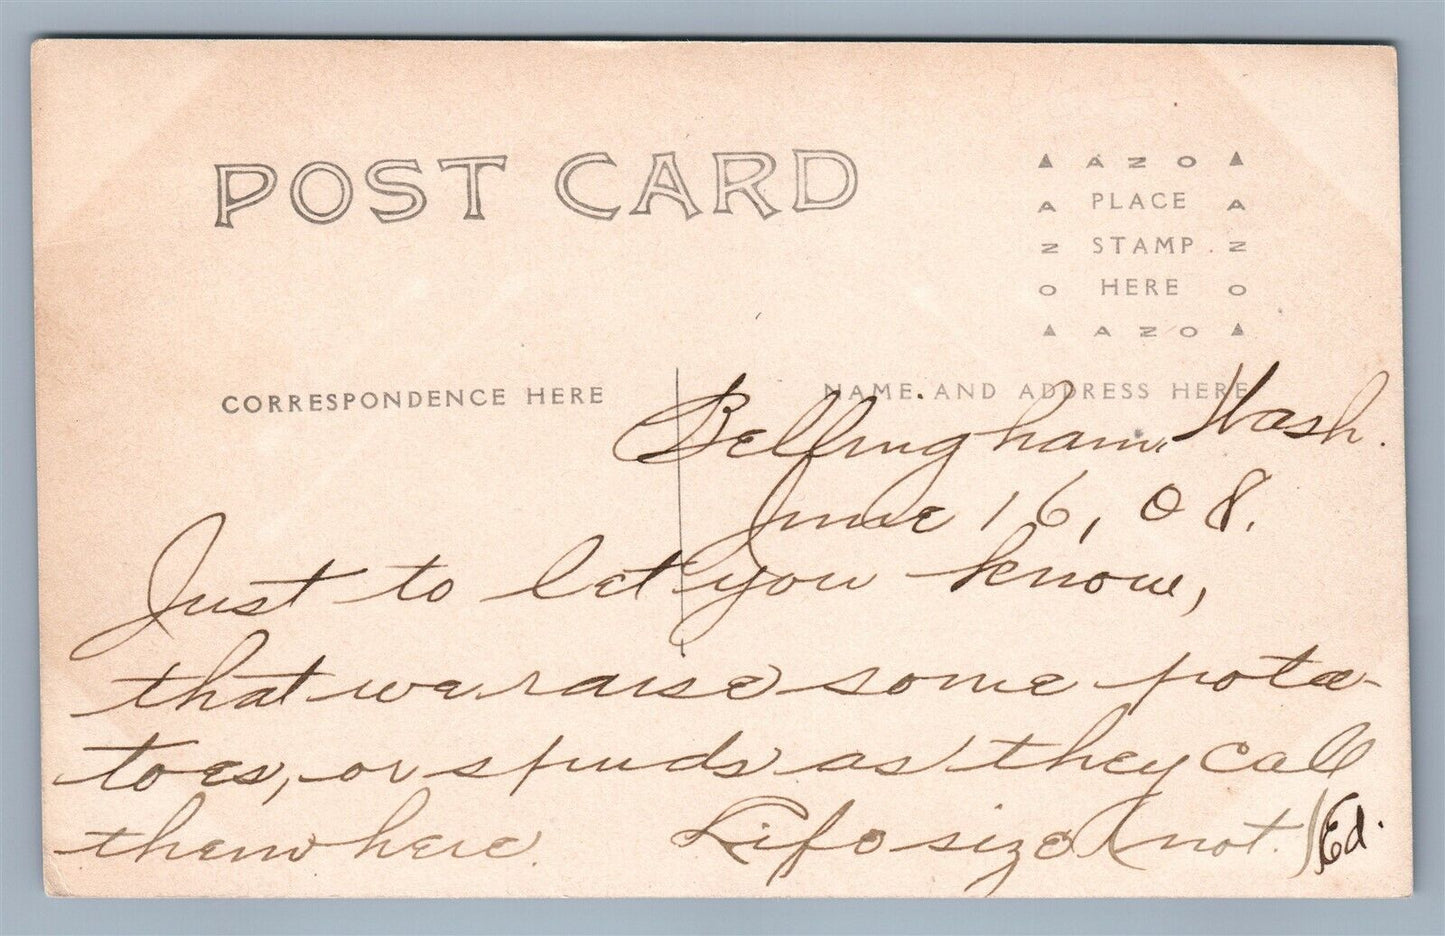 POST CARD
▲ AZO ▲
A PLACE A
N STAMP N
O HERE O
▲ AZO ▲
CORRESPONDENCE HERE
NAME AND ADDRESS HERE
Bellingham, Wash.
June 16, 08.
Just to let you know,
that we raise some pota-
toes, or spuds as they call
them here. Life size (not.) Ed.